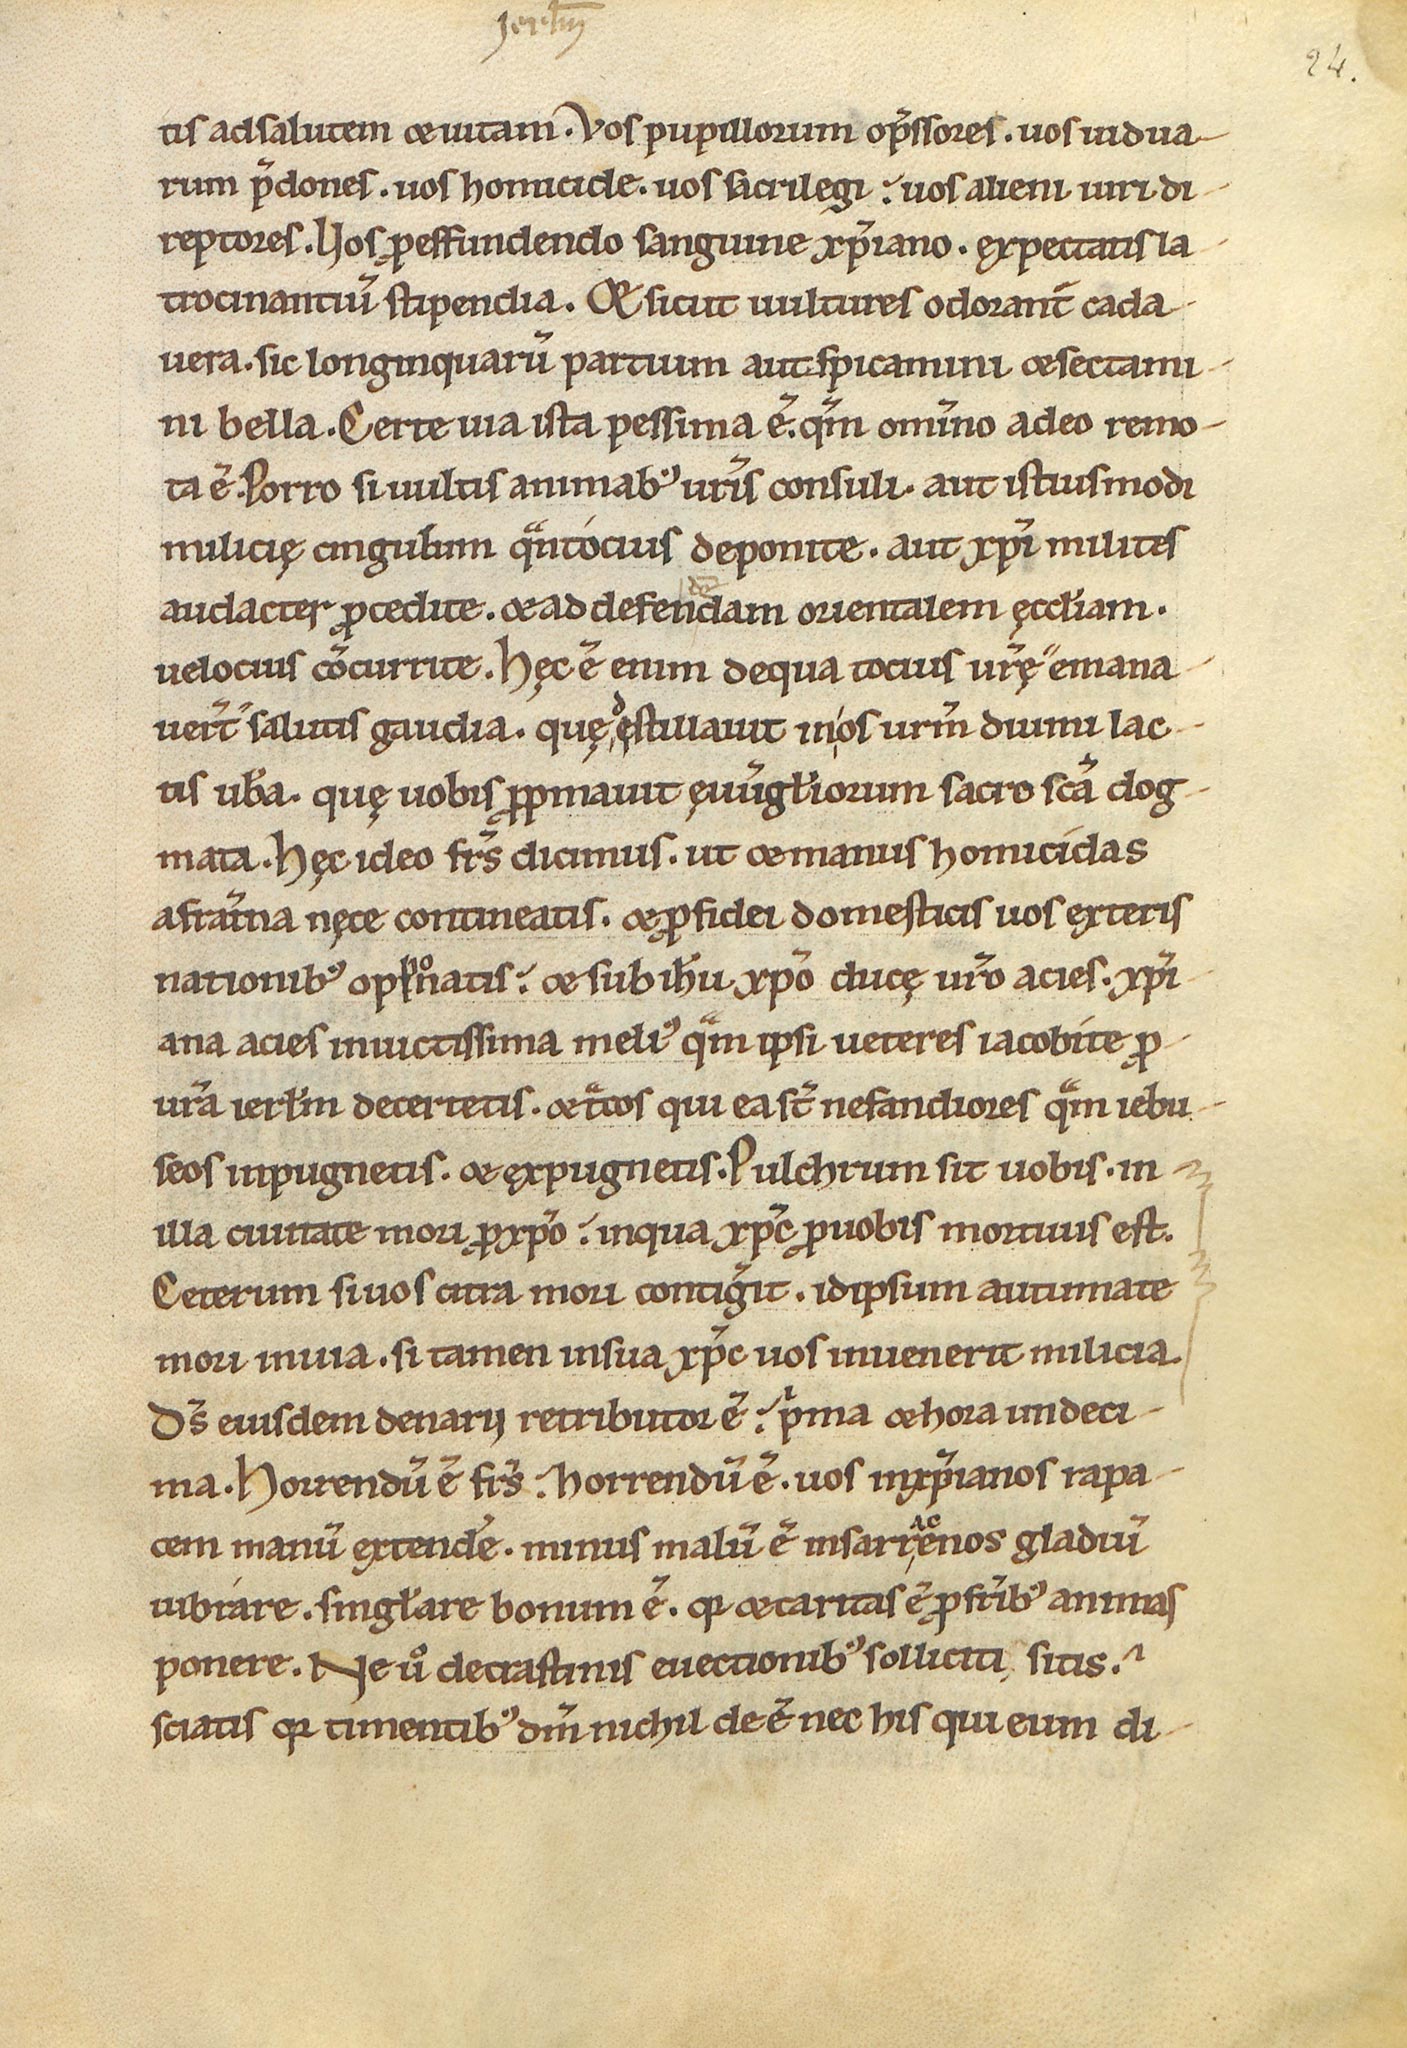 Jerl̄m
24.
tis ad salutem & uitam. Vos pupillorum op̄ssores. uos uidua-
rum p̄dones. uos homicide. uos sacrilegi. uos alieni iuri di-
reptores. Vos ꝓ effundendo sanguine xp̄iano. expectatis la-
trocinantiū stipendia. Et sicut uultures odorant̄ cada-
uera. sic longinquarū partium autspicamini & sectami-
ni bella. Certe uia ista pessima ē. qm̄ omīno a deo remo-
ta ē. Porro si uultis animabꝰ ur̄is consuli. aut istiusmodi
milicię cingulum qͣntocius deponite. aut xp̄i milites
audacter ꝓcedite. & ad defendam orientalem ęccl̄iam.
uelocius cōcurrite. Hęc ē enim de qua tocius ur̄ę emana-
uer̄t salutis gaudia. quę destillauit in os ur̄m diuini lac-
tis ub̄a. quę uobis ꝓpinauit ęuūgl̄iorum sacro sc̄a dog-
mata. Hęc ideo fr̄s dicimus. ut & manus homicidas
a frat̄na nęce contineatis. & ꝓ fidei domesticis uos exteris
nationibꝰ opponatis. & sub ih̄u xp̄o ducę ur̄o acies. xp̄i-
ana acies inuictissima meliꝰ qͣm ipsi ueteres iacobite ꝓ
ur̄a ierl̄m decertetis. & tͣcos qui ea st̄ nefandiores qͣm iebu-
seos inpugnetis. & ęxpugnetis. Pulchrum sit uobis. in
illa ciuitate mori ꝓ xp̄o. in qua xp̄c ꝓ uobis mortuus est.
Ceterum si uos citra mori contiḡit. id ipsum autumate
mori in uia. si tamen in sua xp̄c uos inuenerit milicia.
Ds̄ eiusdem denarij retributor ē. pͥma & hora undeci-
ma. Horrendū ē fr̄s. horrendū ē. uos in xp̄ianos rapa-
cem manū extend̄e. minus malū ē in sarracenos gladiū
uibrare. singl̄are bonum ē. qr & caritas ē ꝓ fr̄ibꝰ animas
ponere. Ne uͦ de crastinis euectionibꝰ solliciti sitis.
sciatis qr timentibꝰ dm̄ nichil de ē nec his qui eum di-